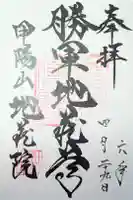 奉拝
六年
四月二九日
勝軍地蔵尊
甲陽山地蔵院